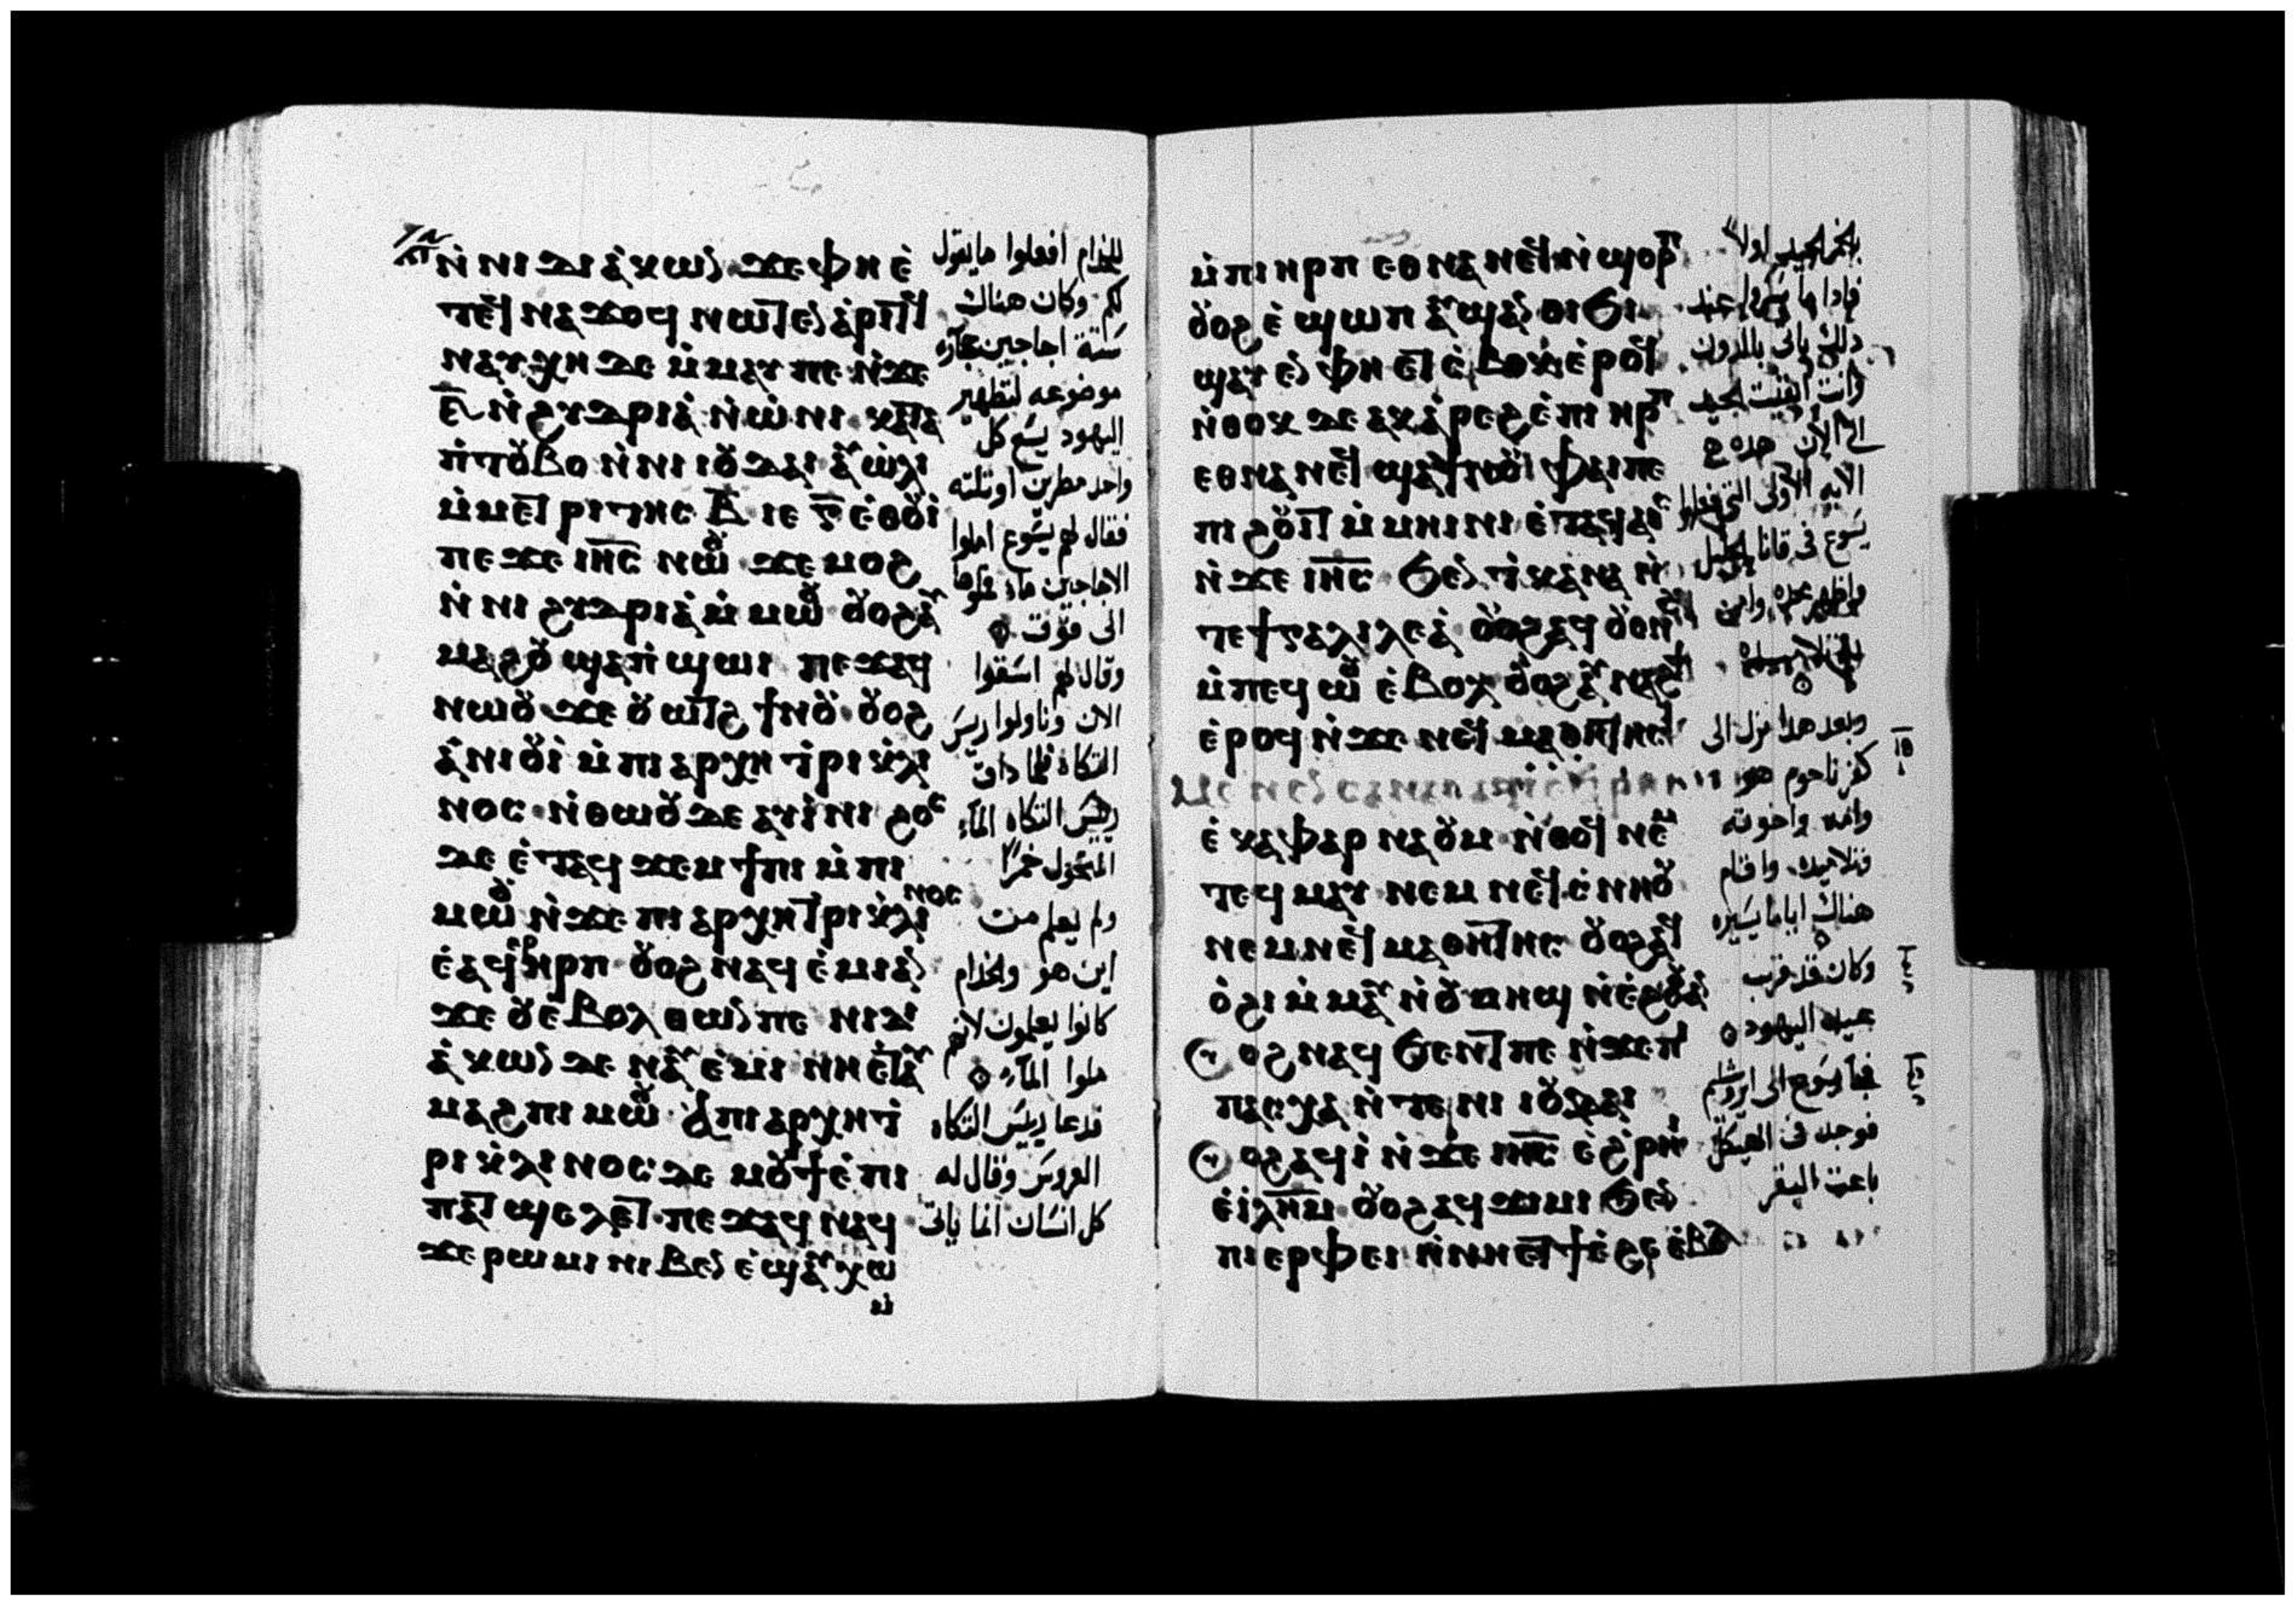 ⲛ̇ⲛⲓ ⲇⲓⲁ̇ⲕⲱⲛ ϫⲉ ⲫⲏ ⲉ̇
ⲧⲉϥⲛⲁϫⲟϥ ⲛⲱⲧⲉⲛ ⲁ̇ⲣⲓⲧϥ
ⲛⲁⲩⲭⲏ ⲇⲉ ⲙ̇ⲙⲁⲩ ⲡⲉ ⲛ̇ϫⲉ
ⲋ̅ ⲛ̇ϩⲩⲇⲣⲓⲁ̇ ⲛ̇ⲱ̇ⲛⲓ
ⲡ̇ⲧⲟⲩⲃⲟ ⲛ̇ⲛⲓ ⲓⲟⲩⲇⲁⲓ ⲉⲩⲱ̇ⲗⲓ
ⲙ̇ⲙⲉⲧⲣⲓⲧⲏⲥ ⲃ̅ ⲓⲉ ⲅ̅ ⲉ̇ⲑⲟⲩⲓ̇
ⲡⲉϫⲉ ⲓⲏ̅ⲥ̅ ⲛⲱⲟⲩ ϫⲉ ⲙⲟϩ
ⲛ̇ⲛⲓ ϩⲩⲇⲣⲓⲁ̇ ⲙ̇ⲙⲱⲟⲩ ⲟⲩⲟϩ ⲁⲩ
ⲙⲁϩⲟⲩ ϣⲁⲡ̇ϣⲱⲓ ⲡⲉϫⲁϥ
ⲛⲱⲟⲩ ϫⲉ ⲟⲩⲱⲧϩ ϯⲛⲟⲩ ⲟⲩⲟϩ
ⲁ̇ⲛⲓⲟⲩⲓ̇ ⲙ̇ⲡⲓⲁⲣⲭⲏⲧ̇ⲣⲓⲕ̇ⲗⲓ
ⲛⲟⲥ ⲛ̇ⲑⲱⲟⲩ ⲇⲉ ⲁⲩⲓ̇ⲛⲓ ϩⲟⲥ
ⲇⲉ ⲉ̇ⲧⲁϥϫⲉⲙϯⲡⲓ ⲙ̇ⲡⲓ
ⲙⲱⲟⲩ ⲛ̇ϫⲉ ⲡⲓⲁⲣⲭⲏⲧⲣⲓⲕ̇ⲗⲓⲛⲟⲥ
ⲉ̇ⲁϥⲉⲣⲏⲣⲡ ⲟⲩⲟϩ ⲛⲁϥⲉ̇ⲙⲓ ⲁⲛ
ϫⲉ ⲟⲩⲉ̇ⲃⲟⲗ ⲑⲱⲛ ⲡⲉ ⲛⲓⲇⲓ
ⲁ̇ⲕⲱⲛ ⲇⲉ ⲛⲁⲩⲉ̇ⲙⲓ ⲛⲏ ⲉ̇ⲧⲁⲩ
ⲙⲁϩ ⲡⲓⲙⲱⲟⲩ ⲁ̇ ⲡⲓⲁⲣⲭⲏⲧ̇
ⲣⲓⲕ̇ⲗⲓⲛⲟⲥ ⲇⲉ ⲙⲟⲩϯ ⲉ̇ⲡⲓ
ⲡⲁⲧϣⲉⲗⲉⲧ ⲡⲉϫⲁϥ ⲛⲁϥ
ϫⲉ ⲣⲱⲙⲓ ⲛⲓⲃⲉⲛ ⲉ̇ϣⲁⲩⲭⲱ
ⲙ̇
للخدام افعلوا ما يقول
لكم وكان هناك
ستة اجاجين حجارة
موضوعه لتطهير
اليهود يسع كل
واحد مطرين او ثلثه
فقال لهم يسوع املوا
الاجاجين ماء فملوها
الى فوق
وقال لهم اسقوا
الان وناولوا ريس
التكاه فلما داق
ريس التكاه الماء
المتحول خمرا
ولم يعلم من
اين هو والخدام
كانوا يعلمون لانهم
ملوا الماء
فدعا رييس التكاه
العروس وقال له
كل انسان انما ياتى
ⲙ̇ⲡⲓⲏⲣⲡ ⲉⲑⲛⲁⲛⲉϥ ⲛ̇ϣⲟⲣⲡ
ⲟⲩⲟϩ ⲉ̇ϣⲱⲡ ⲁⲩϣⲁⲛⲑⲓϧⲓ
ϣⲁⲩⲉⲛ ⲫⲏ ⲉⲧϭⲟϫⲉⲃ ⲉ̇ⲣⲟϥ
ⲛ̇ⲑⲟⲕ ⲇⲉ ⲁⲕⲁ̇ⲣⲉϩ ⲉ̇ⲡⲓⲏⲣⲡ
ⲉⲑⲛⲁⲛⲉϥ ϣⲁ ϯⲛⲟⲩ ⲫⲁⲓ ⲡⲉ
ⲡⲓϩⲟⲩⲓⲧ ⲙ̇ⲙⲏⲓⲛⲓ ⲉ̇ⲧⲁϥⲁⲓϥ
ⲛ̇ϫⲉ ⲓⲏ̅ⲥ̅ ϧⲉⲛ ⲧ̇ⲕⲁⲛⲁ ⲛ̇
ⲧⲉ ϯⲅⲁⲗⲓⲗⲉⲁ̇ ⲟⲩⲟϩ ⲁϥⲟⲩⲱⲛϩ
ⲙ̇ⲡⲉϥⲱⲟⲩ ⲉ̇ⲃⲟⲗ ⲟⲩⲟϩ ⲁⲩⲛⲁϩϯ
ⲉ̇ⲣⲟϥ ⲛ̇ϫⲉ ⲛⲉϥⲙⲁⲑⲏⲧⲏⲥ
ⲉ̇ⲕⲁⲫⲁⲣⲛⲁⲟⲩⲙ ⲛ̇ⲑⲟϥ ⲛⲉⲙ
ⲧⲉϥⲙⲁⲩ ⲛⲉⲙ ⲛⲉϥⲥ̇ⲛⲏⲟⲩ
ⲛⲉⲙ ⲛⲉϥⲙⲁⲑⲏⲧⲏⲥ ⲟⲩⲟϩ ⲁϥ
ⲟ̇ϩⲓ ⲙ̇ⲙⲁⲩ ⲛ̇ⲟⲩⲙⲏϣ ⲛ̇ⲉ̇ϩⲟⲟⲩ ⲁⲛ
ⲟⲩⲟϩ ⲛⲁϥϧⲉⲛⲧ ⲡⲉ ⲛ̇ϫⲉ ⲡ̇
ⲡⲁⲥⲭⲁ ⲛ̇ⲧⲉ ⲛⲓ ⲓⲟⲩⲇⲁⲓ
ⲟⲩⲟϩ ⲁϥⲓ̇ ⲛ̇ϫⲉ ⲓⲏ̅ⲥ̅ ⲉ̇ϩ̇ⲣⲏⲓ
ⲉ̇ⲓ̇ⲗ̅ⲏ̅ⲙ̅ ⲟⲩⲟϩ ⲁϥϫⲓⲙⲓ ϧⲉⲛ
ⲡⲓⲉⲣⲫⲉⲓ ⲛ̇ⲛⲏ ⲉⲧϯ ⲉ̇ϩⲉ ⲉ̇ⲃⲟⲗ
بالخمر الجيد اولا
فادا ما سكروا عند
دلك ياتى بالدون
وانت ابقيت الجيد
الى الان هده
الايه الاولى التى فعلها
يسوع فى قانا الجليل
واظهر مجده وامن
وبعد هدا نزل الى
كفرناحوم هو
وامه واخوته
وتلاميده واقام
هناك اياما يسيره
وكان قد قرب
عيد اليهود
فوجد فى الهيكل
باعت البقر